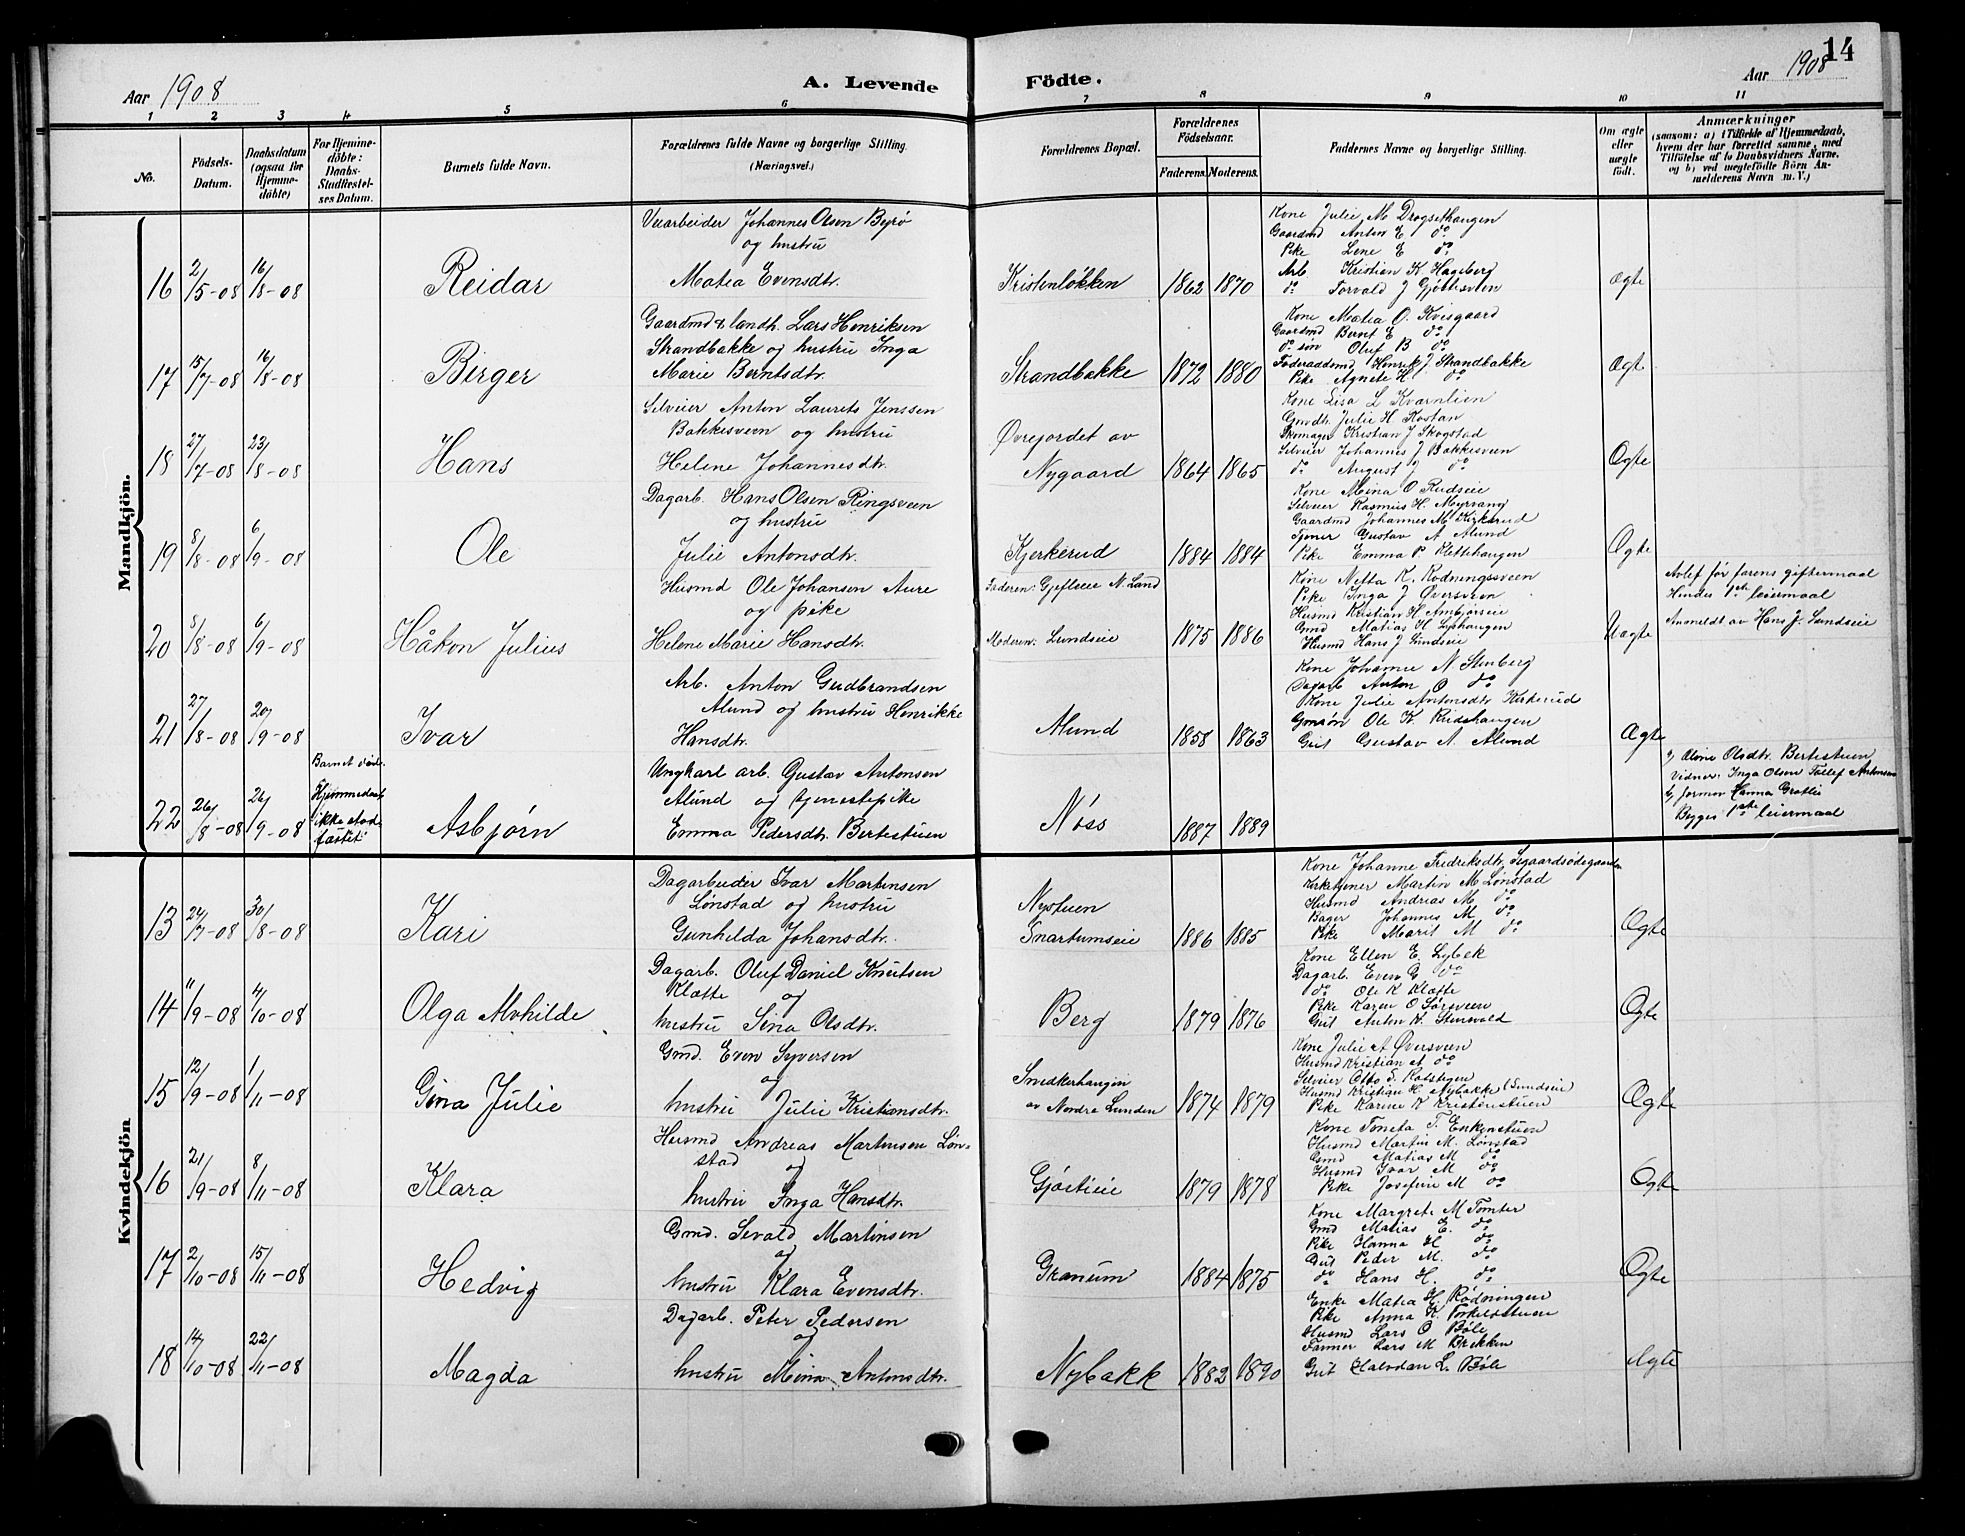 14
Aar 1908
A. Levende Födte.
Aar 1908
1 2 3 4 5 6 7 8 9 10 11
No.
Födsels-
Datum.
Daabsdatum
(ogsaa for
Hjemme-
döbte)
For Hjemme-
döbte:
Daabs-
Stadfæstel-
ses Datum.
Barnets fulde Navn.
Forældrenes fulde Navne og borgerlige Stilling.
(Næringsvei.)
Forældrenes Bopæl.
Forældrenes
Födselsaar.
Faderens. Moderens.
Faddernes Navne og borgerlige Stilling.
Om ægte
eller
uægte
født.
Anmærkninger
(saasom: a) i Tilfælde af Hjemmedaab,
hvem der har forrettet samme, med
Tilföielse af to Daabsvidners Navne,
og b) ved uegtefödte Börn An-
melderens Navn m. V.)
Mandkjön.
16 2/5-08 16/8-08 Reidar
Johannes Olsen Byrø
og hustru
Matea Evensdtr.
Kristenløkken 1862 1870
Kone Julie M Drogsethaugen
Gaardmd Anton E do
Pike Lene E do
Arb. Kristian K Hageberg
do Torvald J Gjøttesveen
Ægte
17 15/7-08 16/8-08 Birger
Gaardmd & landh. Lars Henriksen
Strandbakke og hustru Inga
Marie Berntsdtr.
Strandbakke 1872 1880
Kone Matea O. Kvisgaard
Gaardmd Bernt E do
do søn Oluf B do
Føderaadsmd Henrik J. Strandbakke
Pike Agnete H. do
Ægte
18 27/7-08 23/8-08 Hans
Selveier Anton Laurets Jenssen
Bakkesveen og hustru
Helene Johannesdtr.
Øvrejordet av
Nygaard 1864 1865
Kone Lisa L Kvernlien
Gmdtr. Julie H Rostan
Skomager Kristian J Skogstad
Selveier Johannes J Bakkesveen
do August J do
Ægte
19 8/8-08 6/9-08 Ole
Dagarb. Hans Olsen Ringsveen
og hustru
Julie Antonsdtr.
Kjerkerud 1884 1884
Kone Mina O Rudseie
Selveier Rasmus H. Myrvang
Gaardmd Johannes M Kirkerud
Tjener Gustav A Alund
Pike Emma P. Klettehaugen
Ægte
20 8/8-08 6/9-08 Håkon Julius
Husmd Ole Johansen Aure
og pike
Helene Marie Hansdtr.
Faderen: Gjefleeie N. Land
Moderen: Lundseie 1875 1886
Kone Netta K. Rodningssveen
Pike Inga J Øversveen
Husmd Kristian H. Ambjørseie
Gmd Matias H Lyshaugen
Husmd Hans J Lundseie
Uægte
Avlet før farens giftermaal
Hendes 1ste leiermaal
Anmeldt av Hans J. Lundseie
21 27/8-08 20/9-08 Ivar
Arb. Anton Gudbrandsen
Alund og hustru Henrikke
Hansdtr.
Alund 1858 1863
Kone Johanne N. Stenberg
Dagarb Anton O do
Kone Julie Antonsdtr Kirkerud
Gmsøn Ole K. Rudshaugen
Gut Gustav A. Alund
Ægte
22 26/8-08 26/9-08
Barnet død.
Hjemmedaab
ikke stad-
fæstet
Asbjørn
Ungkarl arb. Gustav Antonsen
Alund og tjenestepike
Emma Pedersdtr. Bertestuen
Nøss 1887 1889
a) Oline Olsdtr. Bertestuen
Vidner: Inga Olsen Tollef Antonsen
b) Jormor Hanna Gratlie
Begges 1ste leiermaal
Kvindekjön
13 24/7-08 30/8-08 Kari
Dagarbeider Ivar Martinsen
Lønstad og hustru
Gunhilda Johansdtr.
Nystuen
Snartumseie 1886 1885
Kone Johanne Fredriksdtr.
Kirketjener Martin M Lønstad
Husmd Andreas M. do
Bager Johannes M do
Pike Marit M do
Ægte
14 11/9-08 4/10-08 Olga Mathilde
Dagarb. Oluf Daniel Knutsen
Klette og
hustru Sina Olsdtr.
Berg 1879 1876
Kone Ellen E. Lybek
Dagarb. Even G do
do Ole K Klette
Pike Karen O Sørsveen
Gut Anton K. Stensvold
Ægte
15 12/9-08 1/11-08 Gina Julie
Gmd. Even Syversen
og
hustru Julie Kristiansdtr.
Smedkerhaugen
av Nordre Lunden 1874 1879
Kone Julie A Øversveen
Husmd Kristian A do
Selveier Otto S. Rotstigen
Husmd Kristian H. Nybakke (Lundseie)
Pike Karine K Kristenstuen
Ægte
16 21/9-08 8/11-08 Klara
Husmd Andreas Martinsen Løn-
stad og
hustru Inga Hansdtr.
Gjøstieie 1879 1878
Kone Toneta T. Enkerstuen
Husmd Martin M. Lønstad
Gmd Matias M do
Husmd Ivar M do
Pike Josefine M do
Ægte
17 2/10-08 15/11-08 Hedvig
Gmd. Sevald Martinsen
og
hustru Klara Evensdtr.
Granum 1884 1875
Kone Margrete M Tomter
Gmd Matias E. do
Pike Hanna H do
Gut Peder M. do
do Hans H. do
Ægte
18 14/10-08 22/11-08 Magda
Dagarb. Peter Pedersen
og
hustru Mina Antonsdtr.
Nybakk 1882 1890
Enke Matea H. Rødningen
Pike Anna K. Torkelsstuen
Husmd Lars O Bøle
Farmer Lars M Brekken
Gut Halvdan L. Bøle
Ægte